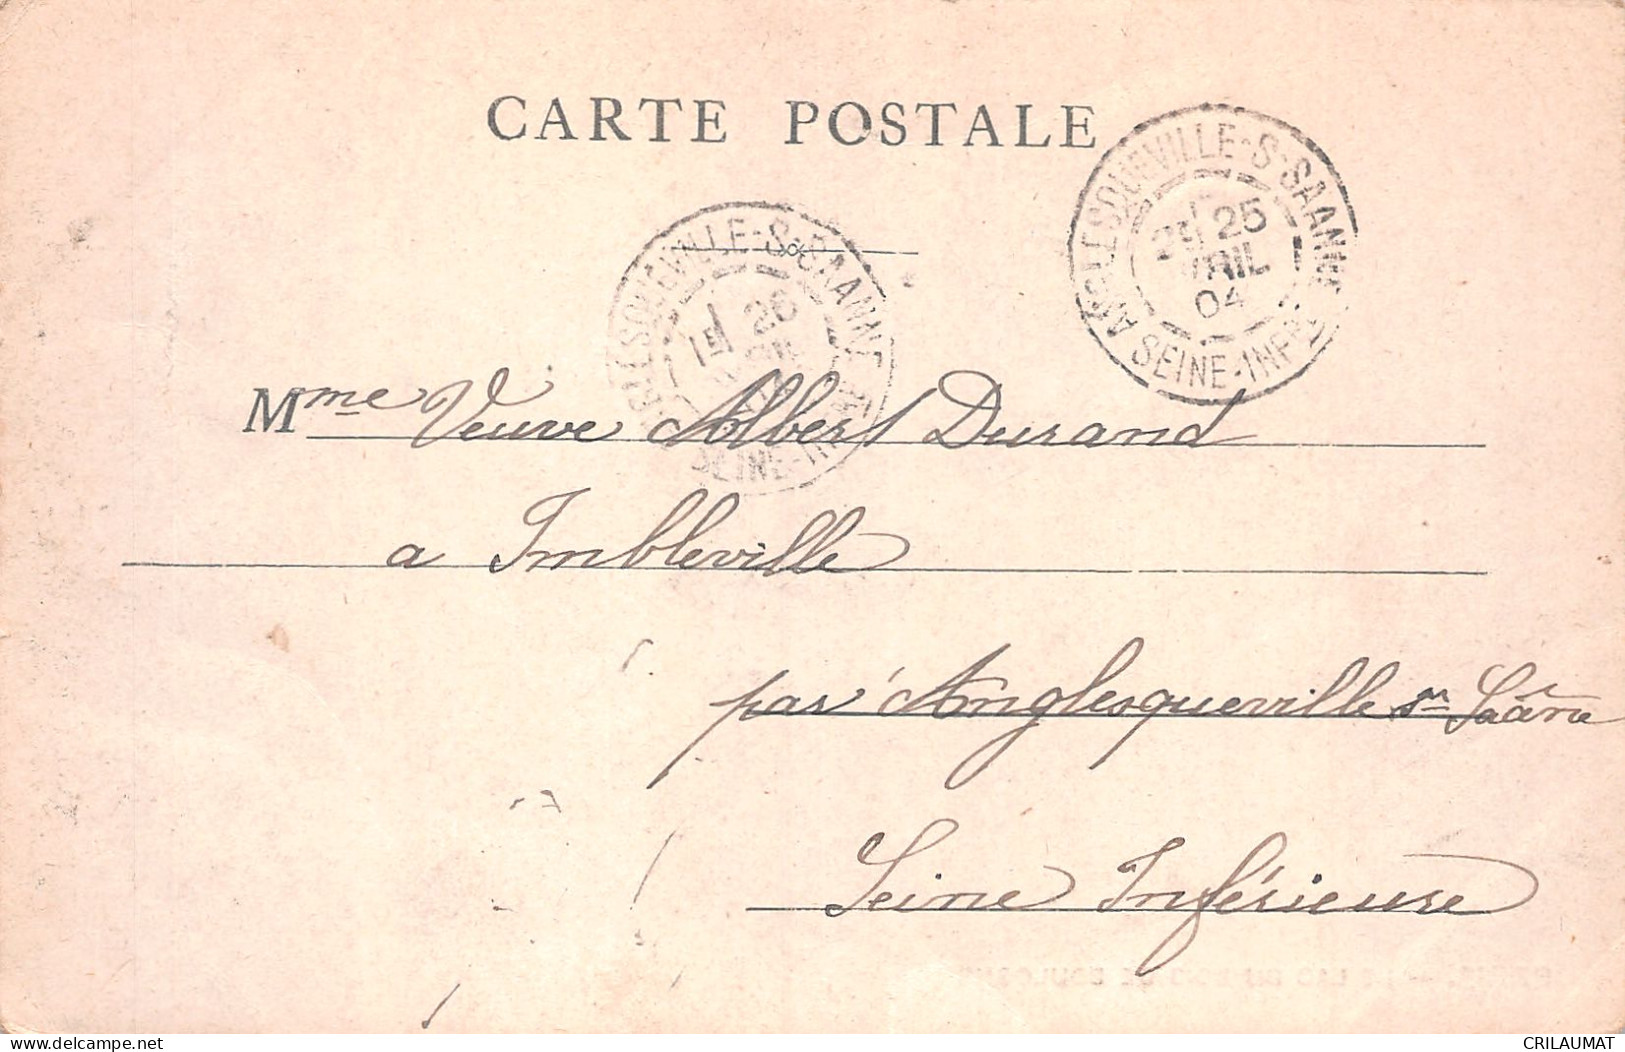 CARTE POSTALE
ANGLESQUEVILLE-S-SAANE
25
AVRIL
04
SEINE-INFRE
ANGLESQUEVILLE-S-SAANE
26
SEINE-INFRE
Mme Veuve Albert Durand
a Imbleville
par Anglesqueville sr Saâne
Seine Inférieure
www.delcampe.net
CRILAUMAT